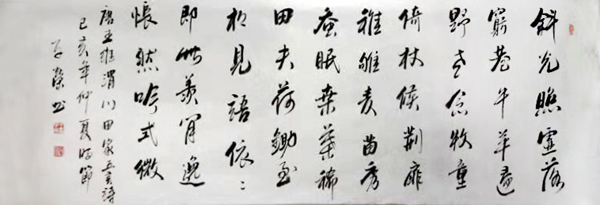 斜光照墟落
窮巷牛羊歸
野老念牧童
倚杖候荆扉
雉雊麦苗秀
蚕眠桑葉稀
田夫荷鋤至
相見語依〻
即此羨閒逸
悵然吟式微
唐王維渭川田家五言詩
己亥年仲夏時節
榮书